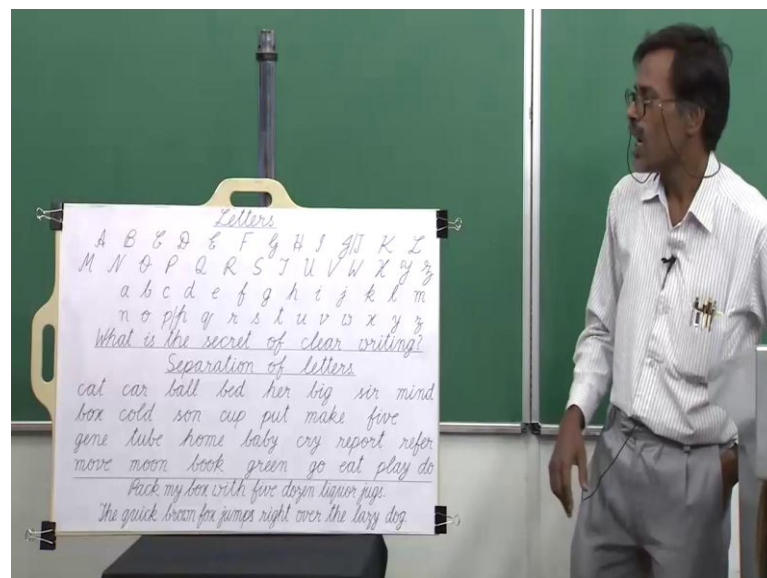 Letters
A B C D E F G H I J/J K L
M N O P Q R S T U V W X Y Z
a b c d e f g h i j k l m
n o p/p q r s t u v w x y z
What is the secret of clear writing?
Separation of letters
cat car ball bed her big sir mind
box cold son cup put make five
gene tube home baby cry report refer
move moon book green go eat play do
Pack my box with five dozen liquor jugs.
The quick brown fox jumps right over the lazy dog